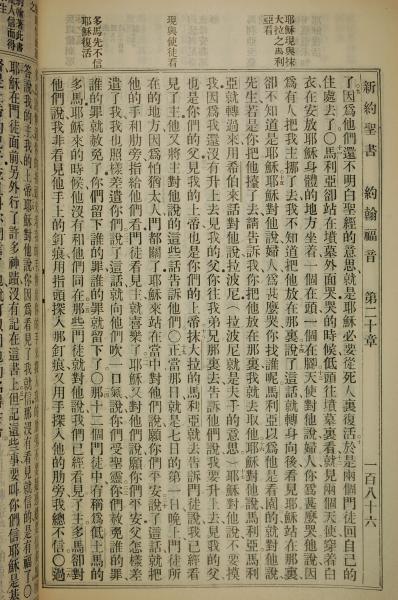 新約聖書　約翰福音　第二十章　一百八十六
耶穌現與抹
大拉之馬利
亞看
現與使徒看
多馬先不信
耶穌復活
了因爲他們還不明白聖經的意思就是耶穌必要從死人裏復活於是兩個門徒回自己的
住處去了〇馬利亞卻站在墳墓外面哭哭的時候低頭往墳墓裏看就見兩個天使穿着白
衣在安放耶穌身體的地方坐着一個在頭一個在腳天使對他說婦人你爲甚麼哭他說因
爲有人把我主挪了去我不知道把他放在那裏說了這話就轉身向後看見耶穌站在那裏
卻不知道是耶穌耶穌對他說婦人爲甚麼哭你找誰呢馬利亞以爲他是看園的就對他說
先生若是你把他擡了去請告訴我你把他放在那裏我就去取他耶穌對他說馬利亞馬利
亞就轉過來用希伯來話對他說拉波尼（拉波尼就是夫子的意思）耶穌對他說不要摸
我因爲我還沒有升上去見我的父你往我弟兄那裏去告訴他們說我要升上去見我的父
也是你們的父見我的上帝也是你們的上帝抹大拉的馬利亞就去告訴門徒說我已經看
見了主他又將主對他說的這些話告訴他們〇正當那日就是七日的第一日晚上門徒所
在的地方因爲怕猶太人門都關了耶穌來站在當中對他們說願你們平安說了這話就把
他的手和肋旁指給他們看門徒看見主就喜樂了耶穌又對他們說願你們平安父怎樣差
遣了我我也照樣差遣你們說了這話就向他們吹一口氣說你們受聖靈你們赦免誰的罪
誰的罪就赦免了你們留下誰的罪誰的罪就留下了〇那十二個門徒中有稱爲低土馬的
多馬耶穌來的時候他沒有和他們同在那些門徒就對他說我們已經看見了主多馬卻對
他們說我非看見他手上的釘痕用指頭探入那釘痕又用手探入他的肋旁我總不信〇過